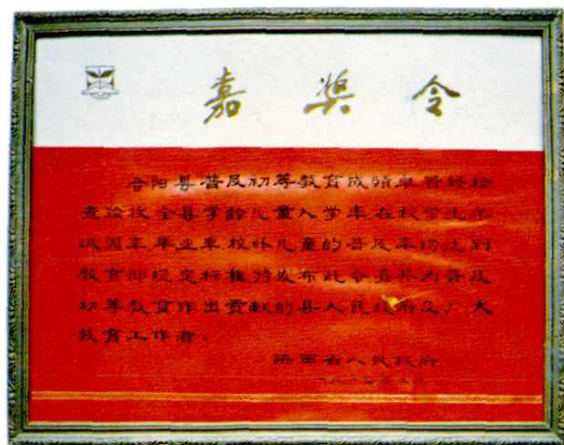 嘉奖令
合阳县普及初等教育成绩卓著经检
查验收全县学龄儿童入学率在校学生年
巩固率毕业率校外儿童的普及率均达到
教育部规定标准特发布此令嘉奖为普及
初等教育作出贡献的县人民政府及广大
教育工作者。
陕西省人民政府